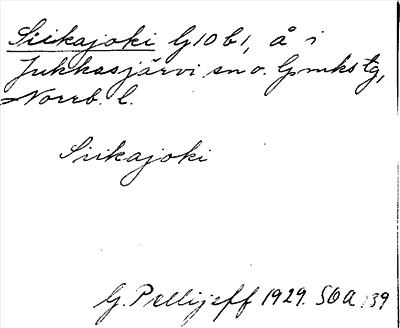 Siikajoki G10b1, å i
Jukkasjärvi sn o. Gmks tg,
Norrb. l.
Siikajoki
G. Pellijeff 1929. SOA :39